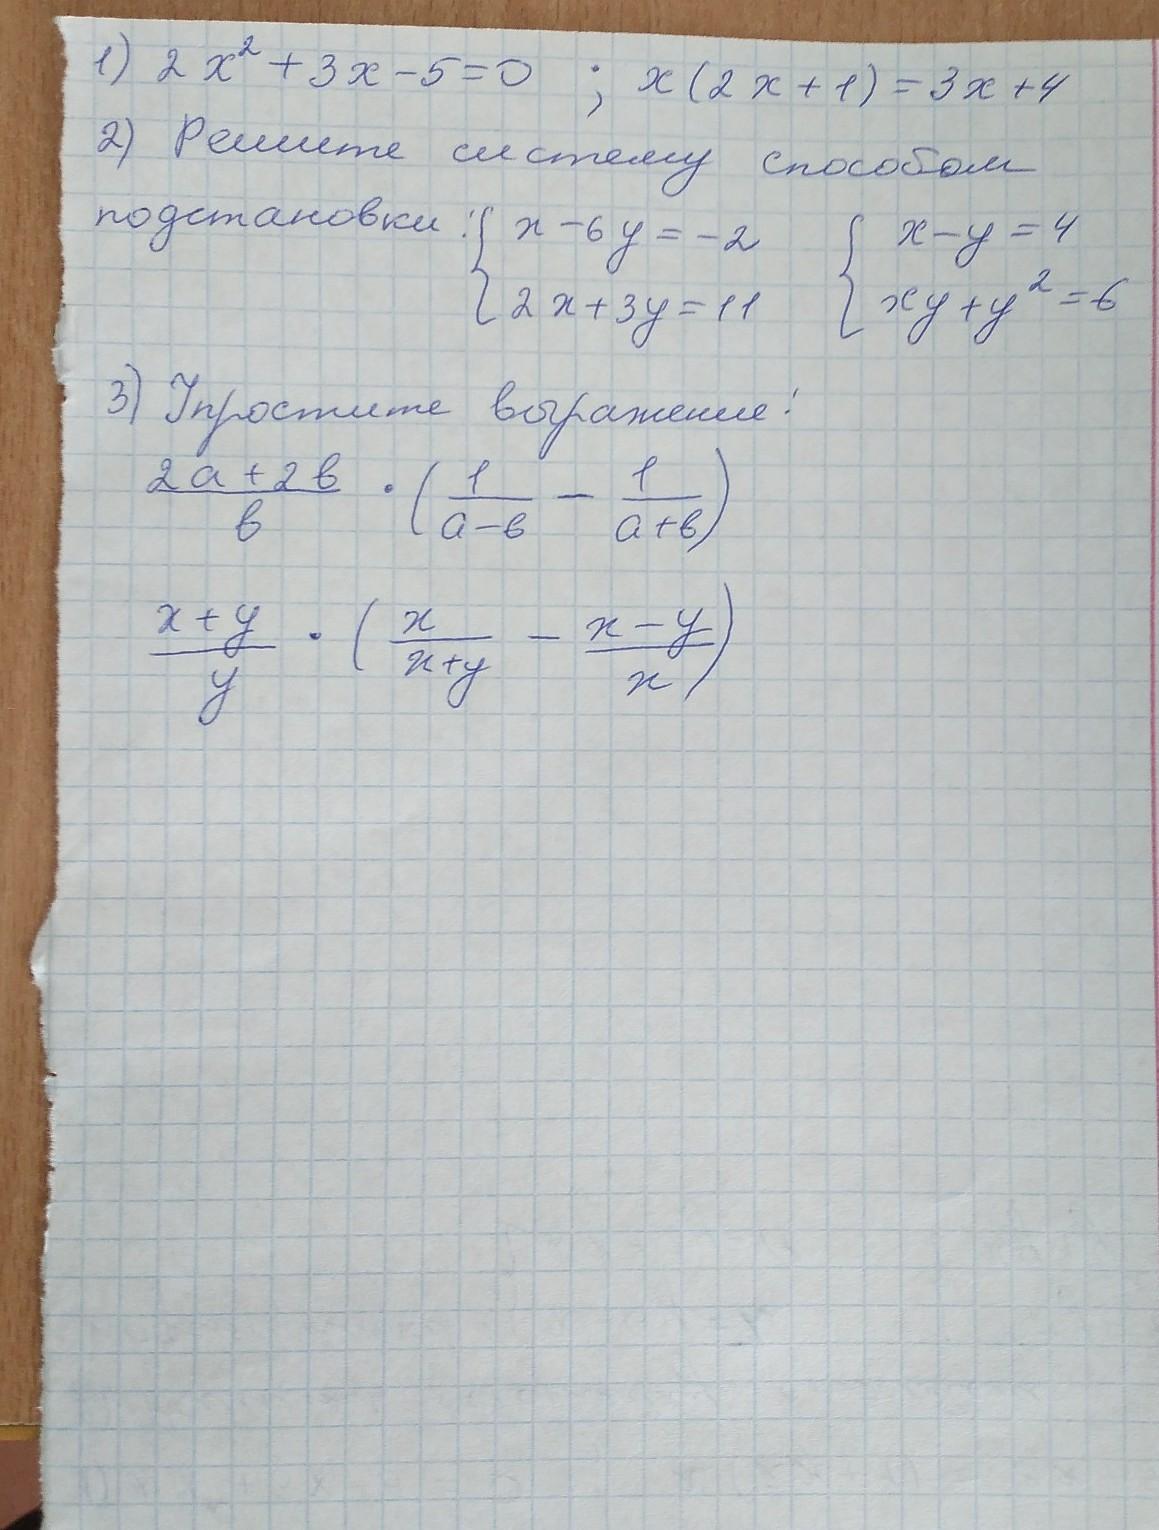 1) 2x² + 3x - 5 = 0 ; x(2x + 1) = 3x + 4
2) Решите систему способом
подстановки: { x - 6y = -2 { x - y = 4
2x + 3y = 11 xy + y² = 6
3) Упростите выражение:
(2a + 2b)/b · (1/(a - b) - 1/(a + b))
(x + y)/y · (x/(x + y) - (x - y)/x)